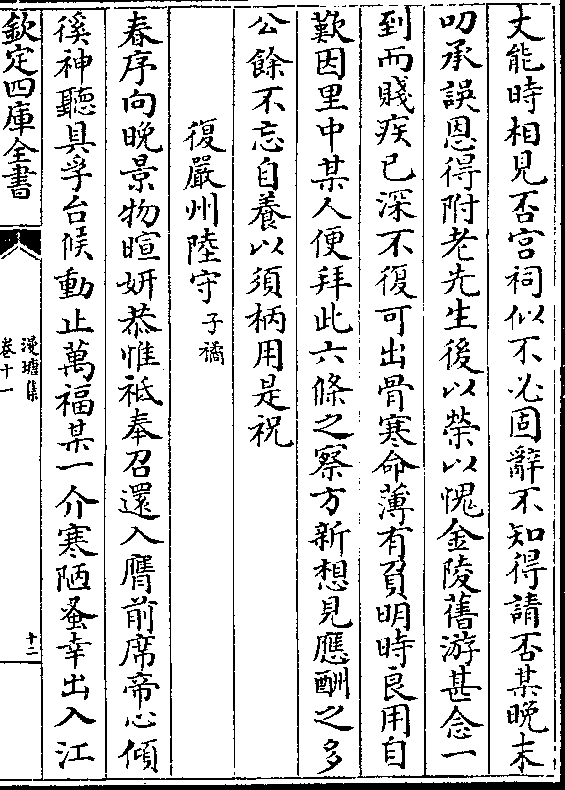 丈能時相見否宮祠似不必固辭不知得請否某晚末
叨承誤恩得附老先生後以榮以愧金陵舊游甚念一
到而賤疾已深不復可出骨寒命薄有負明時良用自
歎因里中某人便拜此六條之察方新想見應酬之多
公餘不忘自養以須柄用是祝
復嚴州陸守子遹
春序向晚景物暄妍恭惟祗奉召還入膺前席帝心傾
徯神聽具孚台候動止萬福某一介寒陋蚤幸出入江
欽定四庫全書
漫塘集
卷十一
十二